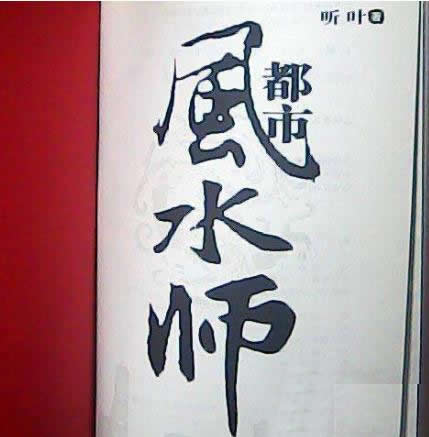 听叶著
都市
風水师